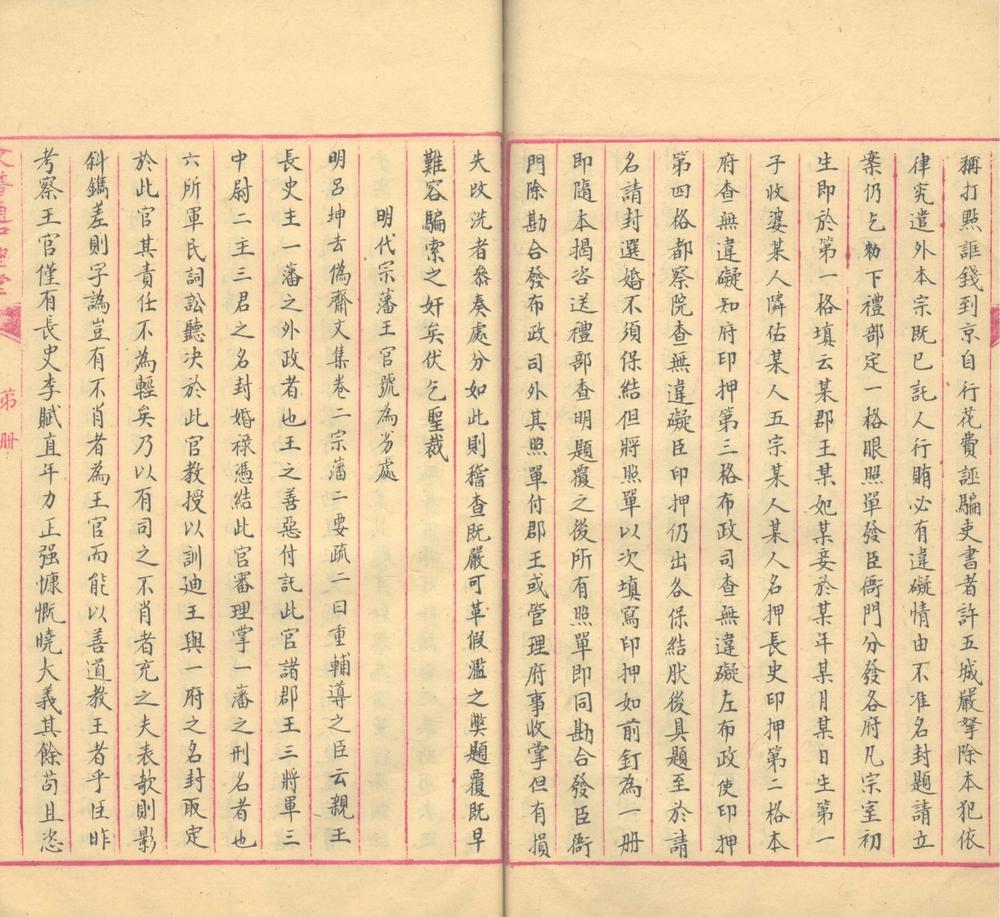 稱打點誆錢到京自行花費誣騙吏書者許五城嚴拏除本犯依
律究遣外本宗既已託人行賄必有違礙情由不准名封題請立
案仍乞勑下禮部定一格眼照單發臣衙門分發各府凡宗室初
生即於第一格填云某郡王某妃某妾於某年某月某日生第一
子收婆某人隣佑某人五宗某人某人名押長史印押第二格本
府查無違礙知府印押第三格布政司查無違礙左布政使印押
第四格都察院查無違礙臣印押仍出各保結狀後具題至於請
名請封選婚不須保結但將照單以次填寫印押如前釘為一册
即隨本揭咨送禮部查明題覆之後所有照單即同勘合發臣衙
門除勘合發布政司外其照單付郡王或管理府事收掌但有損
失改洗者叅奏處分如此則稽查既嚴可革假濫之獘題覆既早
難容騙索之奸矣伏乞聖裁
明代宗藩王官號為劣處
明呂坤去偽齋文集卷二宗藩二要疏二曰重輔導之臣云親王
長史主一藩之外政者也王之善惡付託此官諸郡王三將軍三
中尉二主三君之名封婚祿憑結此官審理掌一藩之刑名者也
六所軍民詞訟聽决於此官教授以訓廸王與一府之名封取定
於此官其責任不為輕矣乃以有司之不肖者充之夫表欹則影
斜鐫差則字譌豈有不肖者為王官而能以善道教王者乎臣昨
考察王官僅有長史李賦直年力正强慷慨曉大義其餘苟且恣
第 册